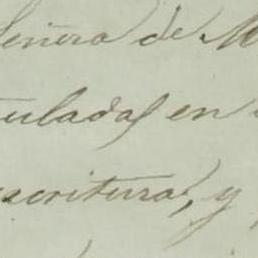 Señora de M
tuladas en
escritura, y